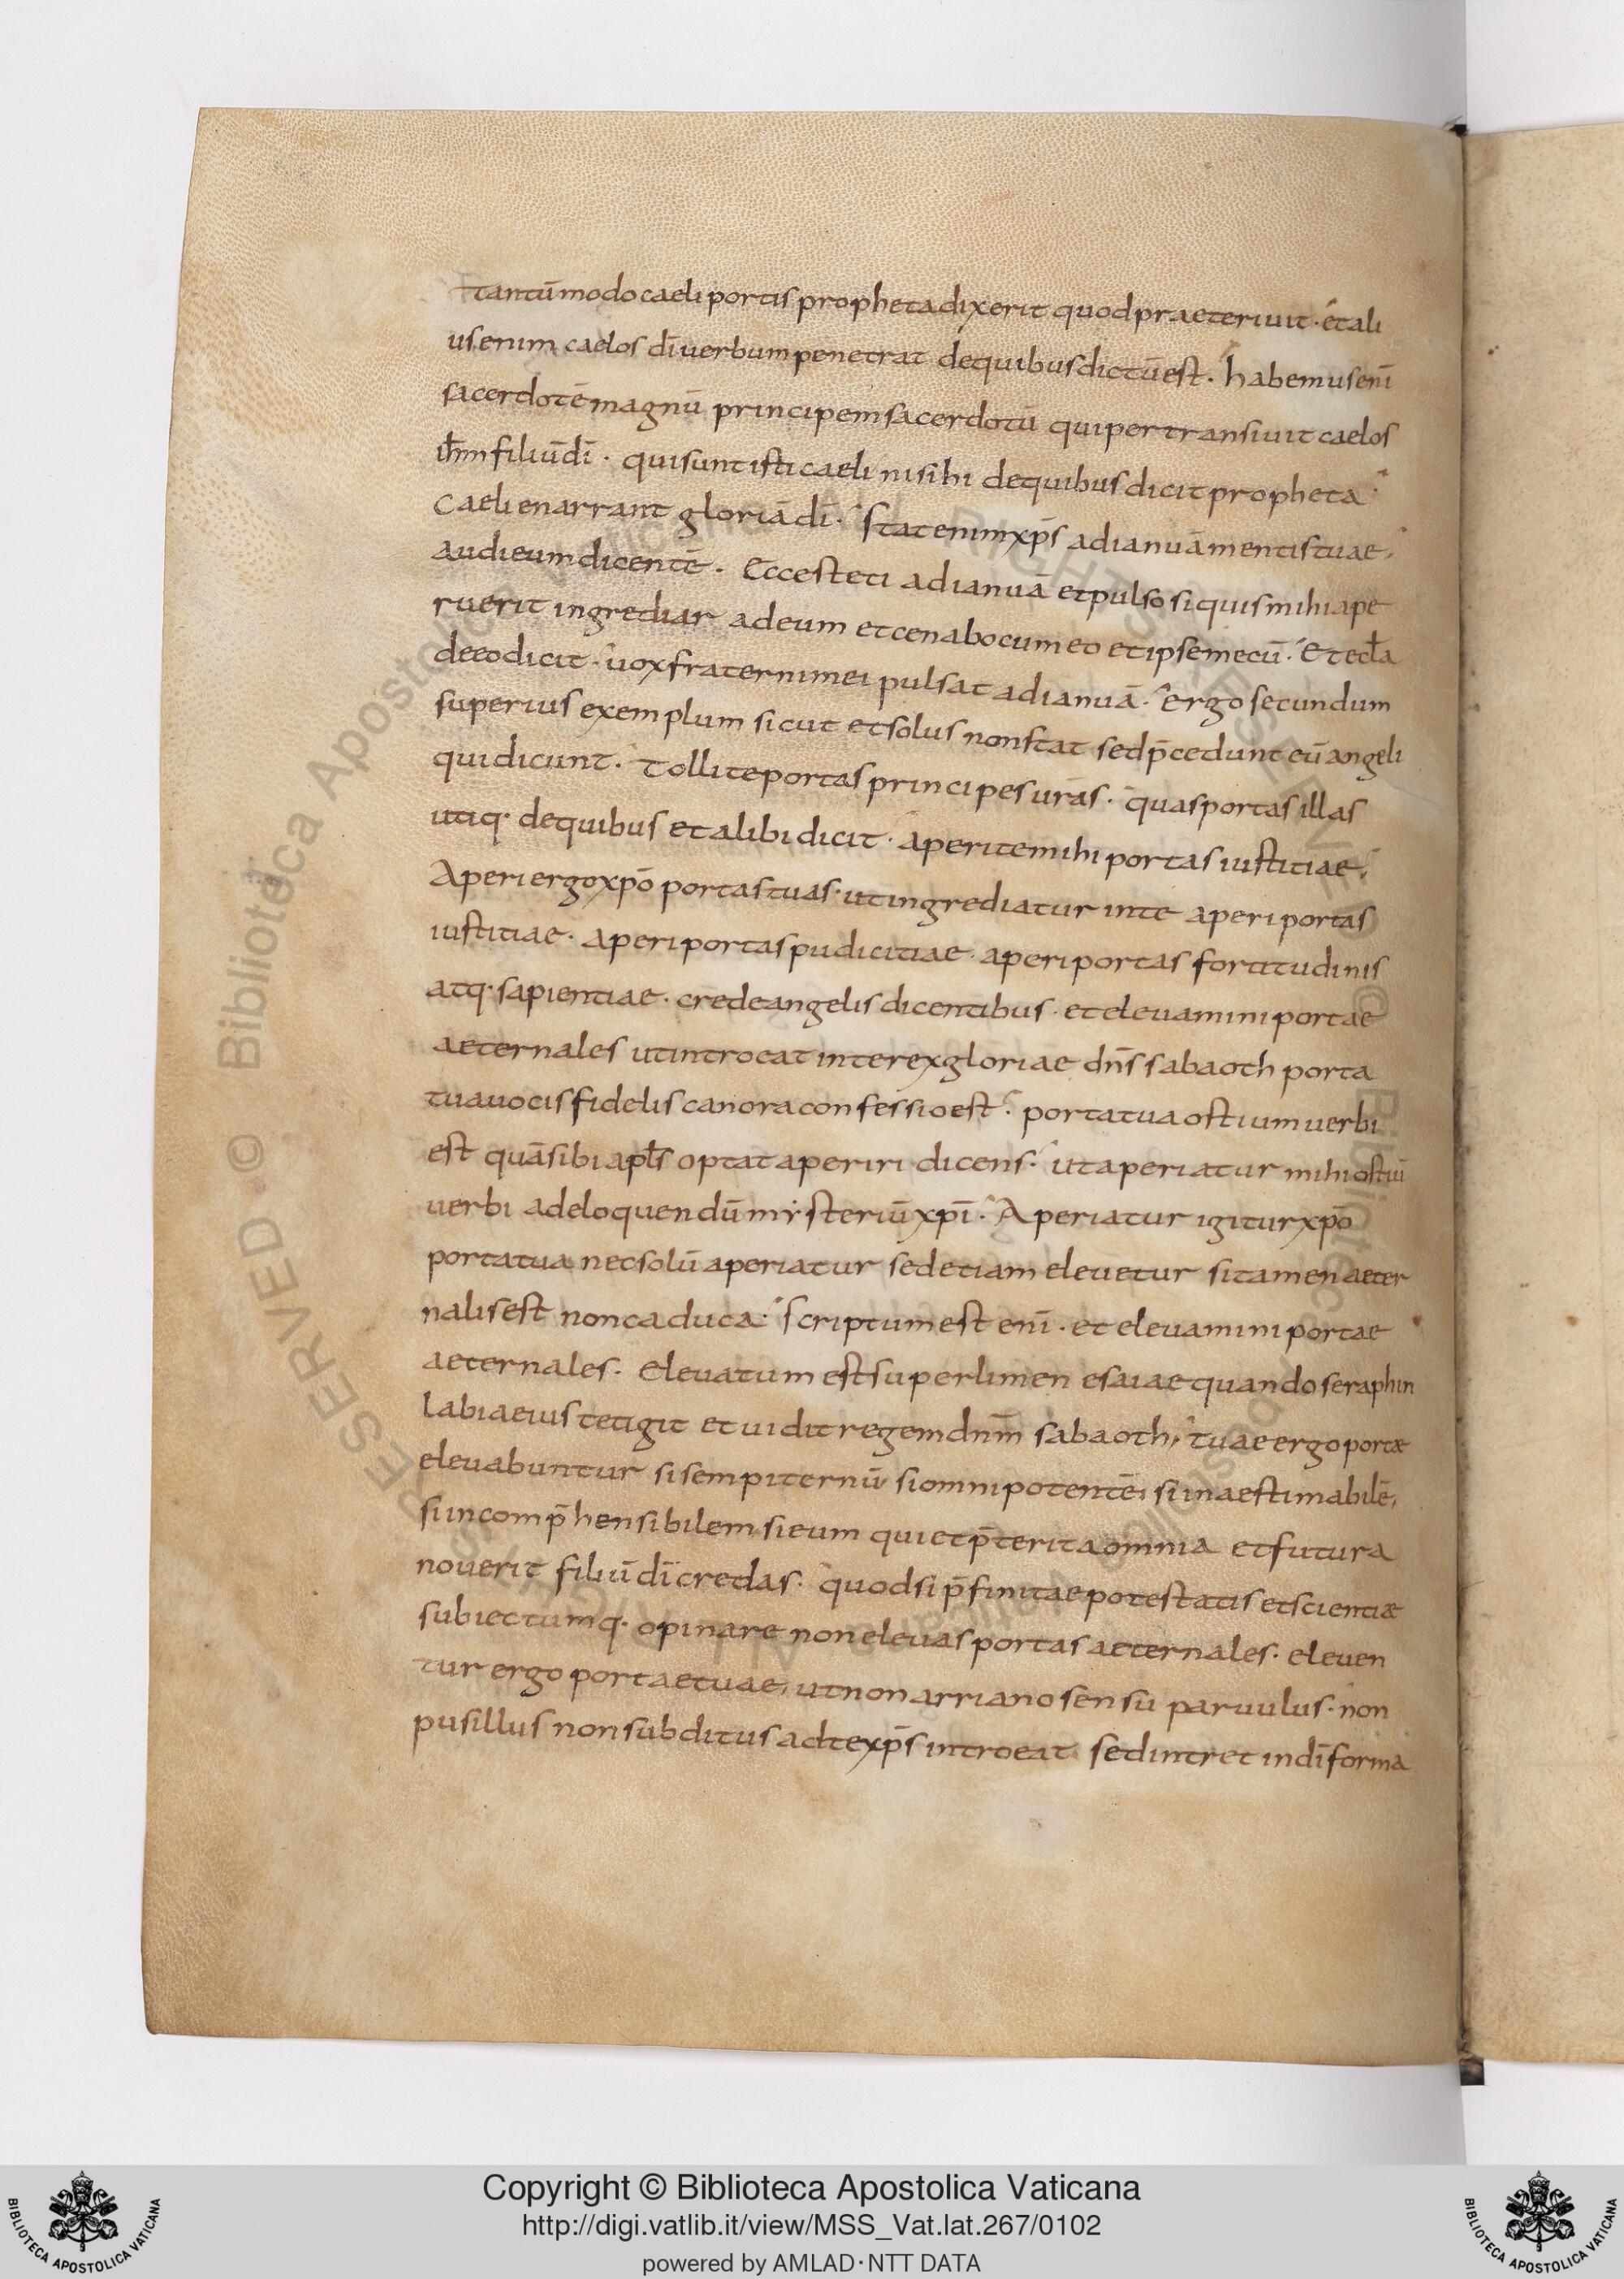 tantū modo caeli portis propheta dixerit quod praeteriuit · et ali
us enim caelos dī uerbum penetrat de quibus dictū est · habemus enī
sacerdotē magnū principem sacerdotū qui pertransiuit caelos
ihm̄ filiū dī · qui sunt isti caeli nisi hi de quibus dicit propheta ·
Caeli enarrant gloriā dī · Stat enim xp̄s ad ianuā mentis tuae ·
audi eum dicentē · Ecce steti ad ianuā et pulso si quis mihi ape
ruerit ingrediar ad eum et cenabo cum eo et ipse mecū · Et eccl̄a
de eo dicit · uox fraterni mei pulsat ad ianuā · ergo secundum
superius exemplum sicut et solus non stat sed p̄cedunt eū angeli
qui dicunt · Tollite portas principes urās · quas portas illas
utiq · de quibus et alibi dicit · aperite mihi portas iustitiae ·
Aperi ergo xpō portas tuas · ut ingrediatur in te aperi portas
iustitiae · aperi portas pudicitiae · aperi portas fortitudinis
atq · sapientiae · crede angelis dicentibus · et eleuamini portae
aeternales ut introeat in te rex gloriae dns̄ sabaoth porta
tua uocis fidelis canora confessio est · porta tua ostium uerbi
est quā sibi apl̄s optat aperiri dicens · ut aperiatur mihi ostiū
uerbi ad eloquendū mysteriū xpī · Aperiatur igitur xpō
porta tua nec solū aperiatur sed etiam eleuetur si tamen aeter
nalis est non caduca · Scriptum est enī · et eleuamini portae
aeternales · eleuatum est superlimen esaiae quando seraphin
labia eius tetigit et uidit regem dnm̄ sabaoth · tuae ergo portæ
eleuabuntur si sempiternū si omnipotentē si inaestimabilē ·
si incomp̄hensibilem si eum qui et p̄terita omnia et futura
nouerit filiū dī credas · quod si p̄finitae potestatis et scientiæ
subiectumq · opinare non eleuas portas aeternales · eleuen
tur ergo portae tuae · ut non arriano sensu paruulus · non
pusillus non subditus ad te xp̄s introeat sed intret in dī forma
Copyright © Biblioteca Apostolica Vaticana
http://digi.vatlib.it/view/MSS_Vat.lat.267/0102
powered by AMLAD · NTT DATA